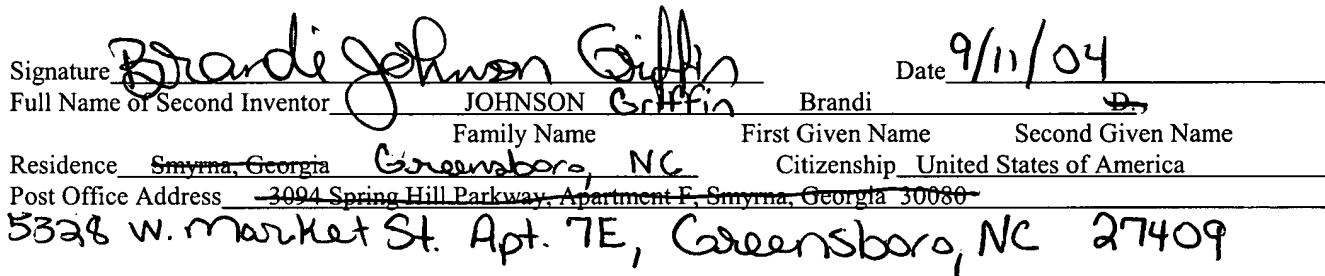 Signature Brandi Johnson Griffin Date 9/11/04
Full Name of Second Inventor JOHNSON Griffin Brandi D.,
Family Name First Given Name Second Given Name
Residence Smyrna, Georgia Greensboro, NC Citizenship United States of America
Post Office Address 3094 Spring Hill Parkway, Apartment F, Smyrna, Georgia 30080
5328 W. Market St. Apt. 7E, Greensboro, NC 27409